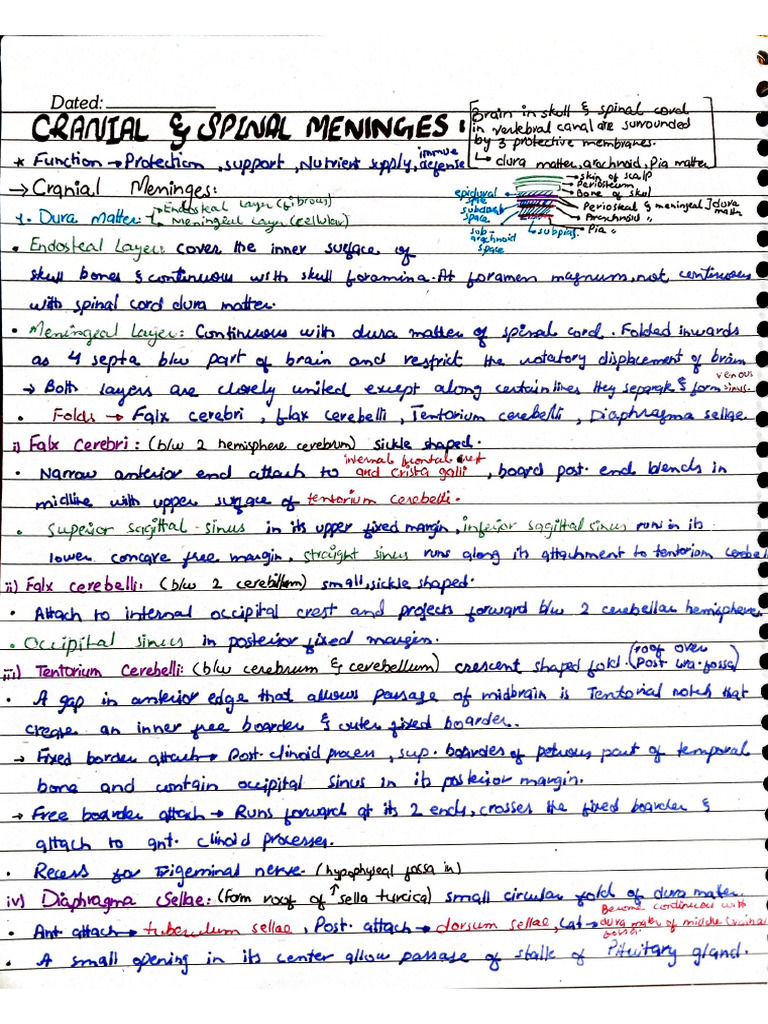 Dated:
CRANIAL & SPINAL MENINGES:
Brain in skull & spinal cord
in vertebral canal are surrounded
by 3 protective membranes.
↳ dura matter, arachnoid, Pia matter
* Function → Protection, support, Nutrient supply, immune defense
→ Cranial Meninges:
skin of scalp
Periosteum
Bone of skul
Periosteal & meningeal ] dura matter
Arachnoid "
Pia "
epidural space
subdural space
sub-arachnoid space
subpial
1. Dura Matter: → Endosteal Layer (fibrous)
→ Meningeal Layer (cellular)
• Endosteal Layer: cover the inner surface of
skull bones & continuous with skull foramina. At foramen magnum, not continuous
with spinal cord dura matter.
• Meningeal Layer: Continuous with dura matter of spinal cord. Folded inwards
as 4 septa b/w part of brain and restrict the rotatory displacement of brain
→ Both layers are closely united except along certain lines they separate & form venous sinus.
• Folds → Falx cerebri, flax cerebelli, Tentorium cerebelli, Diaphragma sellae
i) Falx Cerebri: (b/w 2 hemisphere cerebrum) sickle shaped.
• Narrow anterior end attach to internal frontal crest and crista galli, board post. end blends in
midline with upper surface of tentorium cerebelli.
• Superior sagittal sinus in its upper fixed margin, inferior sagittal sinus runs in its
lower concave free margin, straight sinus runs along its attachment to tentorium cerebelli
ii) Falx cerebelli: (b/w 2 cerebellum) small, sickle shaped.
• Attach to internal occipital crest and projects forward b/w 2 cerebellar hemisphere
• Occipital sinus in posterior fixed margin.
iii) Tentorium Cerebelli: (b/w cerebrum & cerebellum) crescent shaped fold. (roof over Post cra. fossa)
• A gap in anterior edge that allows passage of midbrain is Tentorial notch that
create an inner free boarder & outer fixed boarder.
→ Fixed border attach → Post. clinoid process, sup. boardes of petrous part of temporal
bone and contain occipital sinus in its posterior margin.
→ Free boarder attach → Runs forward at its 2 ends, crosses the fixed boarder &
attach to ant. clinoid processes.
• Recess for Trigeminal nerve. (hypophyseal fossa in)
iv) Diaphragma Sellae: (form roof of ↑ sella turcica) small circular fold of dura mater.
• Ant attach → tuberculum sellae, Post. attach → dorsum sellae, Lat → Become continuous with dura mater of middle cranial fossa.
• A small opening in its center allow passage of stalk of Pituitary gland.